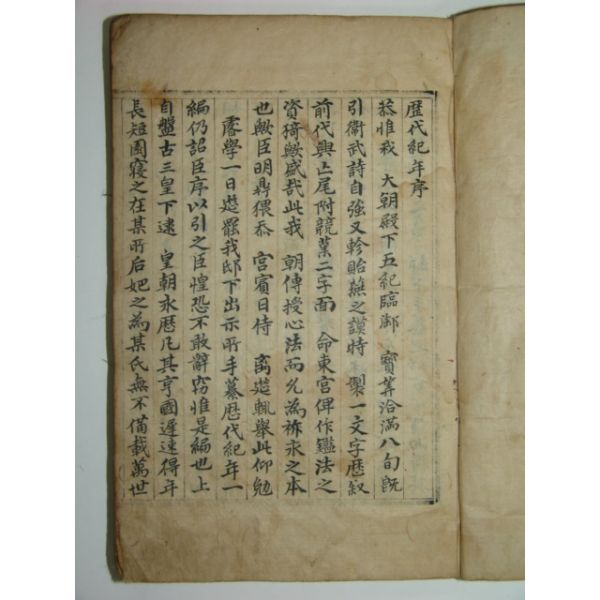 歴代紀年序
恭惟我 大朝殿下五紀臨御 寶筭洽滿八旬旣
引衛武詩自強又軫貽燕之謨特 製一文字歴叙
前代興亾尾附競業二字面 命東宮俾作鑑法之
資猗歟盛哉此我 朝傳授心法而允為祈永之本
也歟臣明鼎猥忝 宮賓日侍 离筵輒舉此仰勉
睿學一日筵罷我邸下出示所手纂歴代紀年一
編仍詔臣序以引之臣惶恐不敢辭竊惟是編也上
自盤古三皇下逮 皇朝永曆凡其享國遲速得年
長短園寢之在某所后妃之為某氏無不備載萬世